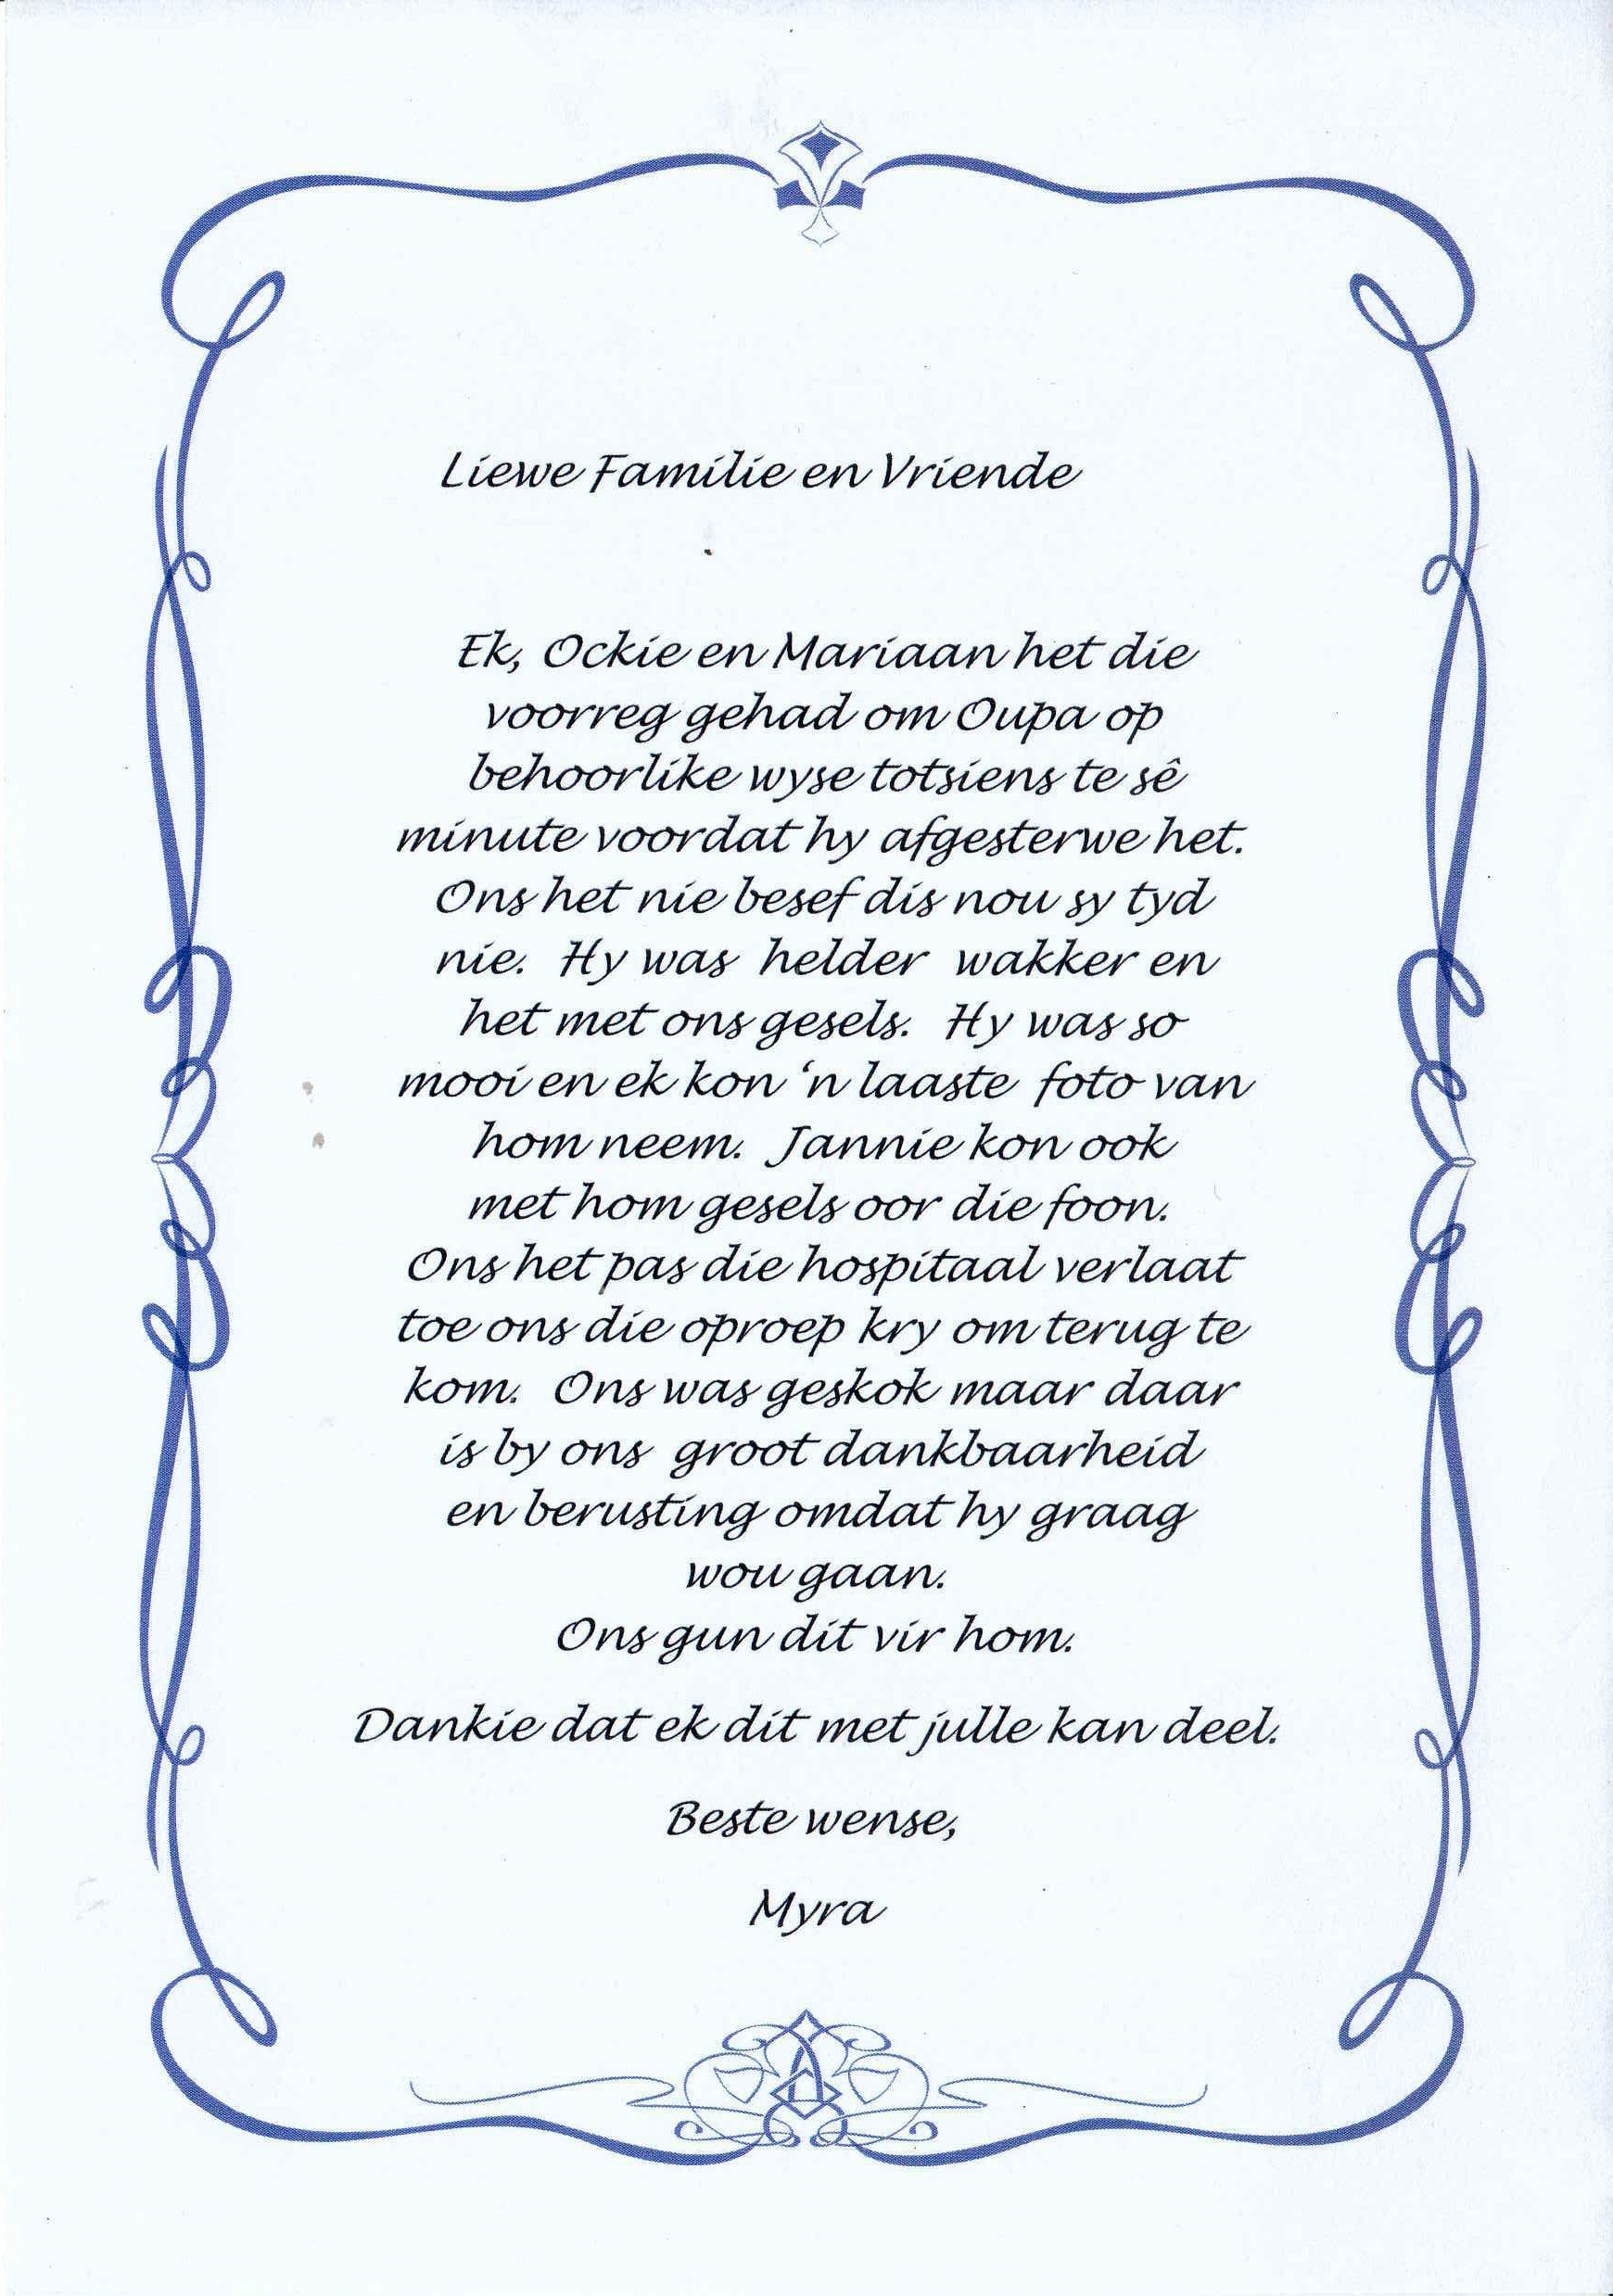 Liewe Familie en Vriende
Ek, Ockie en Mariaan het die
voorreg gehad om Oupa op
behoorlike wyse totsiens te sê
minute voordat hy afgesterwe het.
Ons het nie besef dis nou sy tyd
nie. Hy was helder wakker en
het met ons gesels. Hy was so
mooi en ek kon ‘n laaste foto van
hom neem. Jannie kon ook
met hom gesels oor die foon.
Ons het pas die hospitaal verlaat
toe ons die oproep kry om terug te
kom. Ons was geskok maar daar
is by ons groot dankbaarheid
en berusting omdat hy graag
wou gaan.
Ons gun dit vir hom.
Dankie dat ek dit met julle kan deel.
Beste wense,
Myra